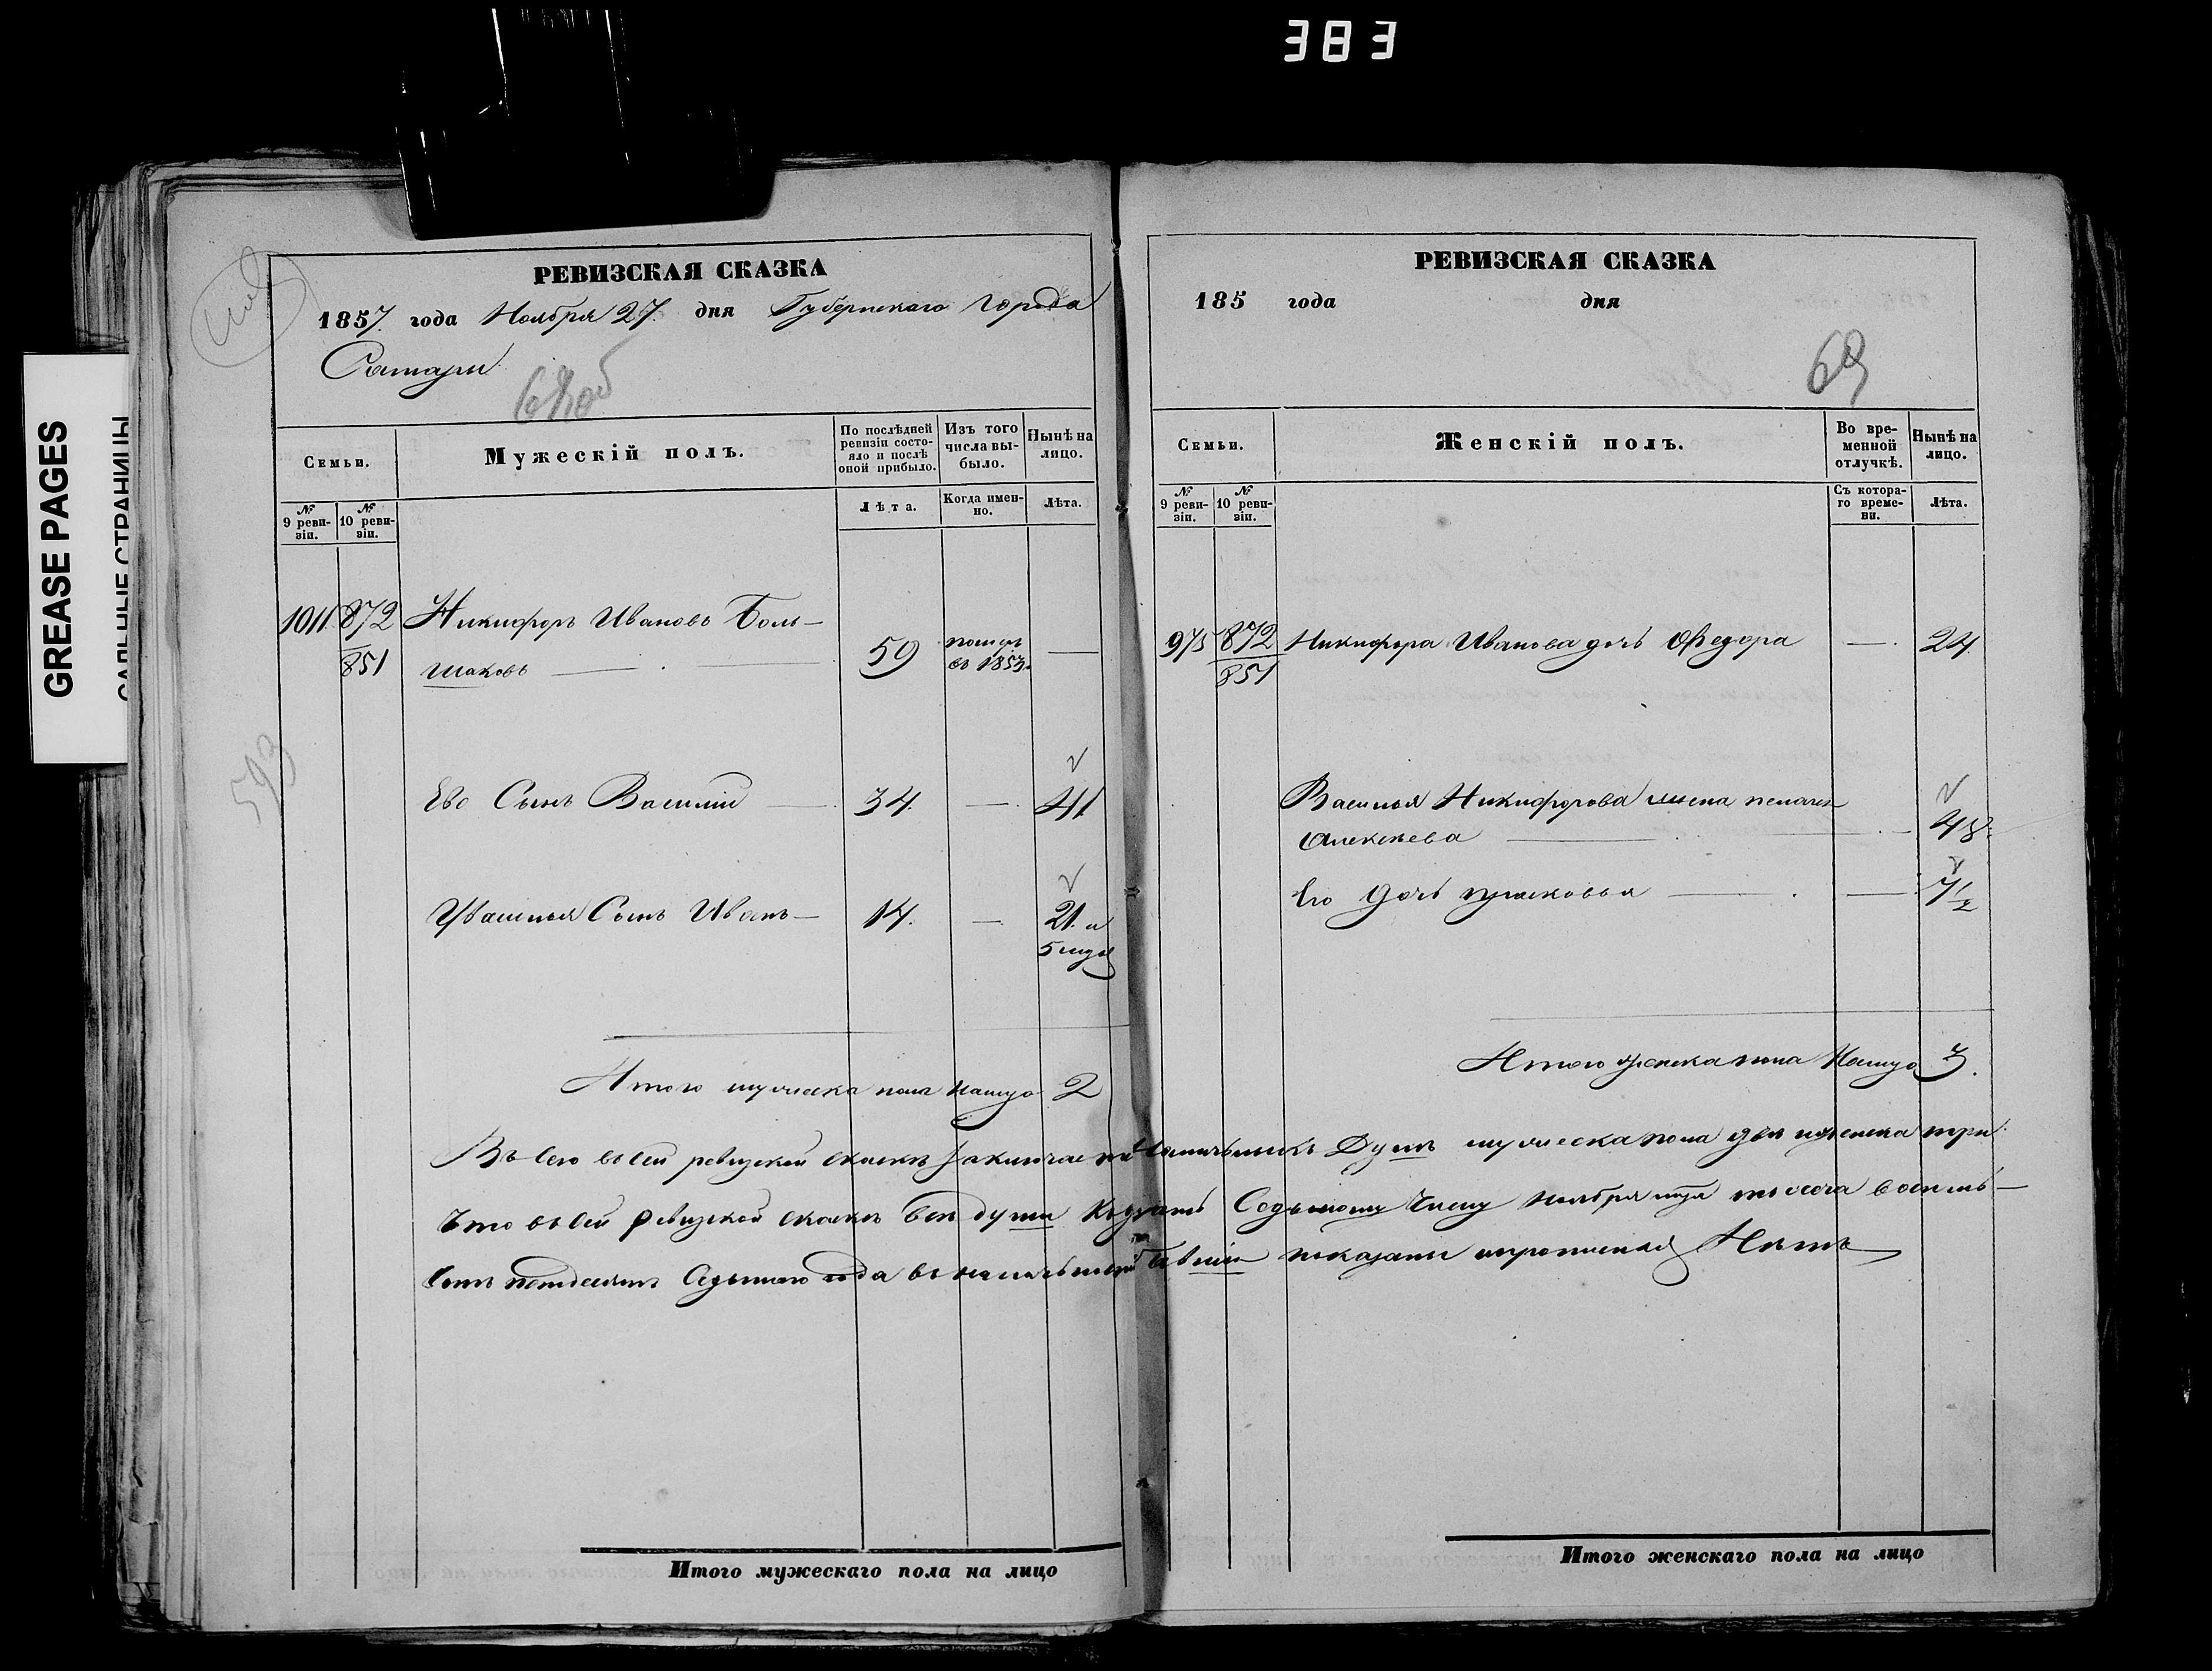 383
GREASE PAGES
РЕВИЗСКАЯ СКАЗКА
1857. года Ноября 27. дня Губернскаго города
Самары
Семьи.
Мужескій полъ.
По послѣдней ревизіи состояло и послѣ оной прибыло.
Изъ того числа выбыло.
Нынѣ на лицо.
№ 9 ревизіи.
№ 10 ревизіи.
Лѣта.
Когда именно.
Лѣта.
1011. 872 Никифоръ Ивановъ Боль-
851 шаковъ — 59 помер въ 1853. —
593
Ево Сынъ Василій — 34. — 41
У Василья Сынъ Иванъ — 14. — 21. и
5 мѣся
Итого мужеска пола налицо 2
Итого мужескаго пола на лицо
РЕВИЗСКАЯ СКАЗКА
185 года дня
69
Семьи.
Женскій полъ.
Во временной отлучкѣ.
Нынѣ на лицо.
№ 9 ревизіи.
№ 10 ревизіи.
Съ котораго времени.
Лѣта.
975 872 Никифора Иванова дочь Федора — 24
851
Василья Никифорова жена
Алексѣева — 48.
Его дочь Прасковья — — 7 1/2
Итого женска пола налицо 3.
Всего въ сей ревизской сказкѣ заключается наличныхъ Душъ мужеска пола двѣ и женска три
Что въ сей ревизской сказкѣ всѣ души Къ двадцать Седьмому Числу Ноября мѣся тысяча восемь-
сотъ петдесятъ Седьмаго года въ показаны и прописных Нѣтъ
Итого женскаго пола на лицо